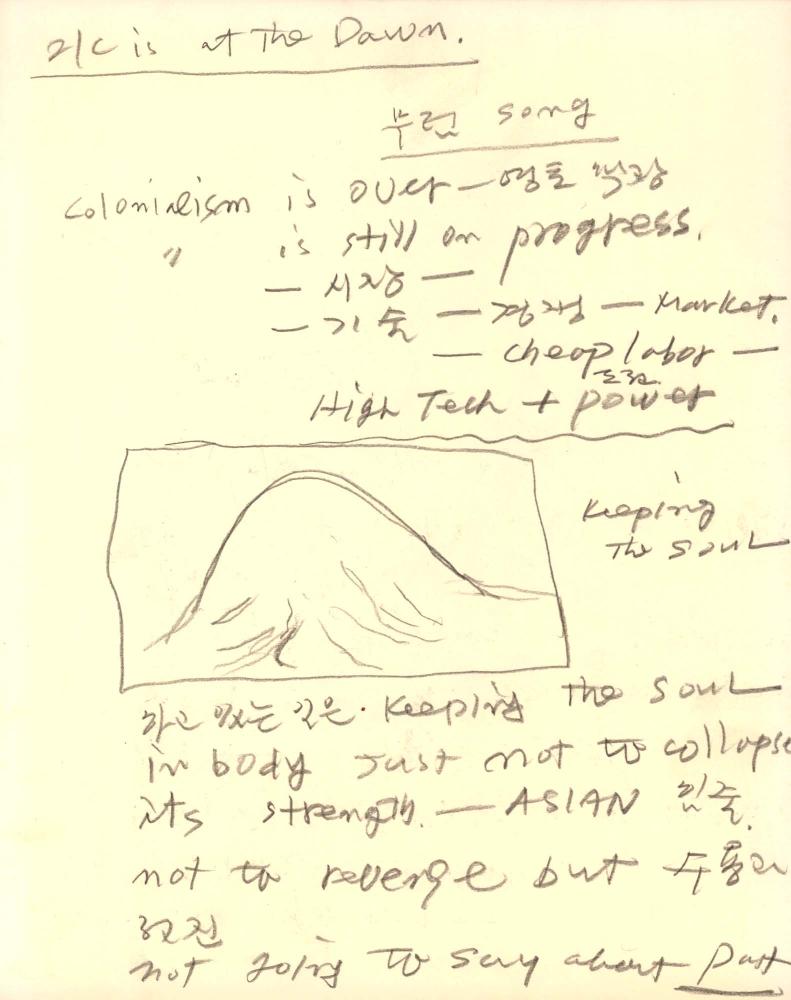 21C is at The Dawn.
song
Colonialism is over — 영토 확장
" is still on progress.
— 시장 —
— 기술 — 경제 — Market.
— cheap labor —
High Tech + power
Keeping
The Soul
하고 있는 것은. Keeping The Soul
in body Just not to collapse
its strength. — ASIAN 민족.
not to revenge but
not going to say about Past